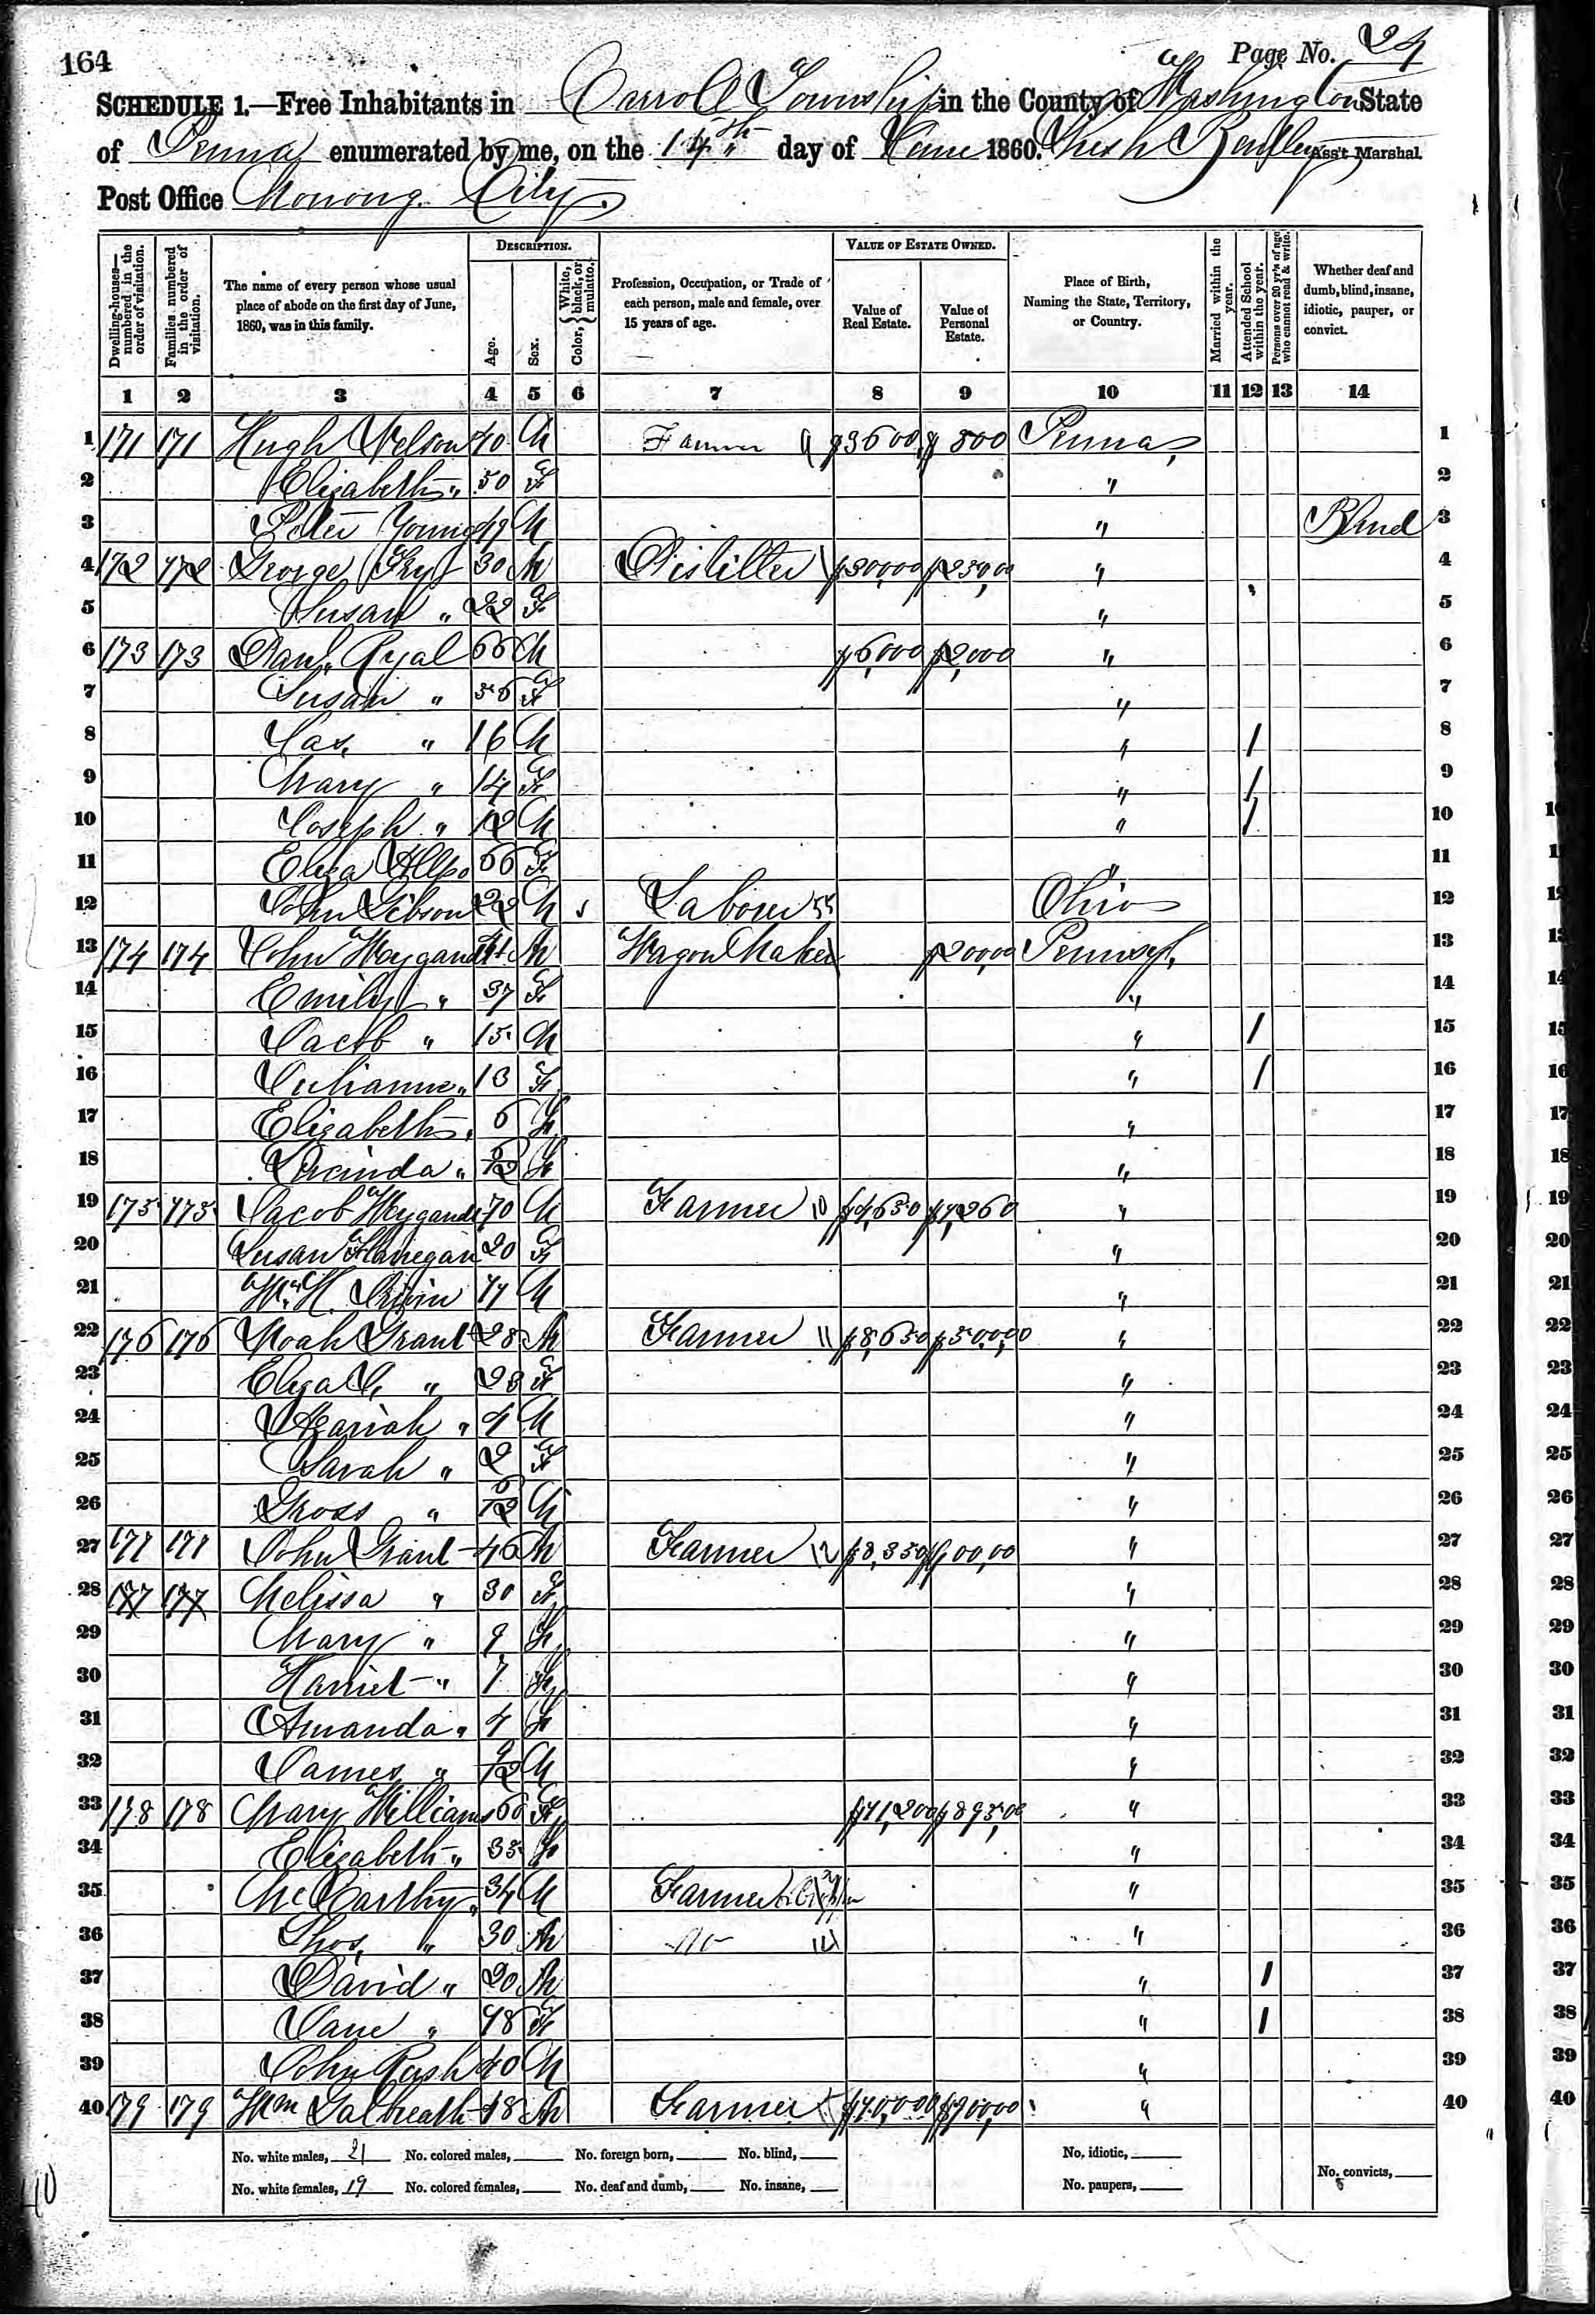 164
Page No. 24
SCHEDULE 1.—Free Inhabitants in Carroll Township in the County of Washington State
of Penna enumerated by me, on the 14th day of June 1860. Ass't Marshal
Post Office Monong. City.
DESCRIPTION. VALUE OF ESTATE OWNED.
Dwelling-houses—numbered in the order of visitation. Families numbered in the order of visitation. The name of every person whose usual place of abode on the first day of June, 1860, was in this family. Age. Sex. Color, {White, black, or mulatto. Profession, Occupation, or Trade of each person, male and female, over 15 years of age. Value of Real Estate. Value of Personal Estate. Place of Birth, Naming the State, Territory, or Country. Married within the year. Attended School within the year. Persons over 20 y'rs of age who cannot read & write. Whether deaf and dumb, blind, insane, idiotic, pauper, or convict.
1 2 3 4 5 6 7 8 9 10 11 12 13 14
1 171 171 Hugh Nelson 40 M Farmer 9 $3600 $500 Penna, 1
2 Elizabeth " 50 F " 2
3 Peter Young 49 M " Blind 3
4 172 172 George Fry 30 M Distiller " 4
5 Susan " 22 F " 5
6 173 173 Danl. Ryal 66 M $6,000 $2,000 " 6
7 Susan " 56 F " 7
8 Jas. " 16 M " / 8
9 Mary " 14 F " / 9
10 Joseph " 12 M " / 10
11 Eliza 66 F " 11
12 John Gibson 22 M Labour Ohio 12
13 174 174 John Weygandt M Wagon Maker $200,00 Pennsyl, 13
14 Emily " 37 F " 14
15 Jacob " 15 M " / 15
16 Julianne " 13 F " / 16
17 Elizabeth " 6 F " 17
18 Lucinda " F " 18
19 175 175 Jacob Weygandt 70 M Farmer 10 " 19
20 Susan Flanegan 20 F " 20
21 Wm. H. 17 M " 21
22 176 176 Noah Grant 28 M Farmer 11 $8,650 $500,00 " 22
23 Eliza J. " 28 F " 23
24 Azariah " 4 M " 24
25 Sarah " 2 F " 25
26 Gross " 6/12 M " 26
27 177 177 John Grant 46 M Farmer 12 $8,350 " 27
28 177 177 Melissa " 30 F " 28
29 Mary " 9 F " 29
30 Harriet " 7 F " 30
31 Amanda " 4 F " 31
32 James " 9/12 M " 32
33 178 178 Mary Williams 66 F $11,200 $895,00 " 33
34 Elizabeth " 35 F " 34
35 McCarthy " 34 M Farmer " 35
36 Thos, " 30 M 14 " 36
37 David " 20 M " / 37
38 Jane " 18 F " / 38
39 John Rush 40 M " 39
40 179 179 Wm Galbreath 48 M Farmer " 40
No. white males, 21 No. colored males, No. foreign born, No. blind, No. idiotic,
No. white females, 19 No. colored females, No. deaf and dumb, No. insane, No. paupers, No. convicts,
40